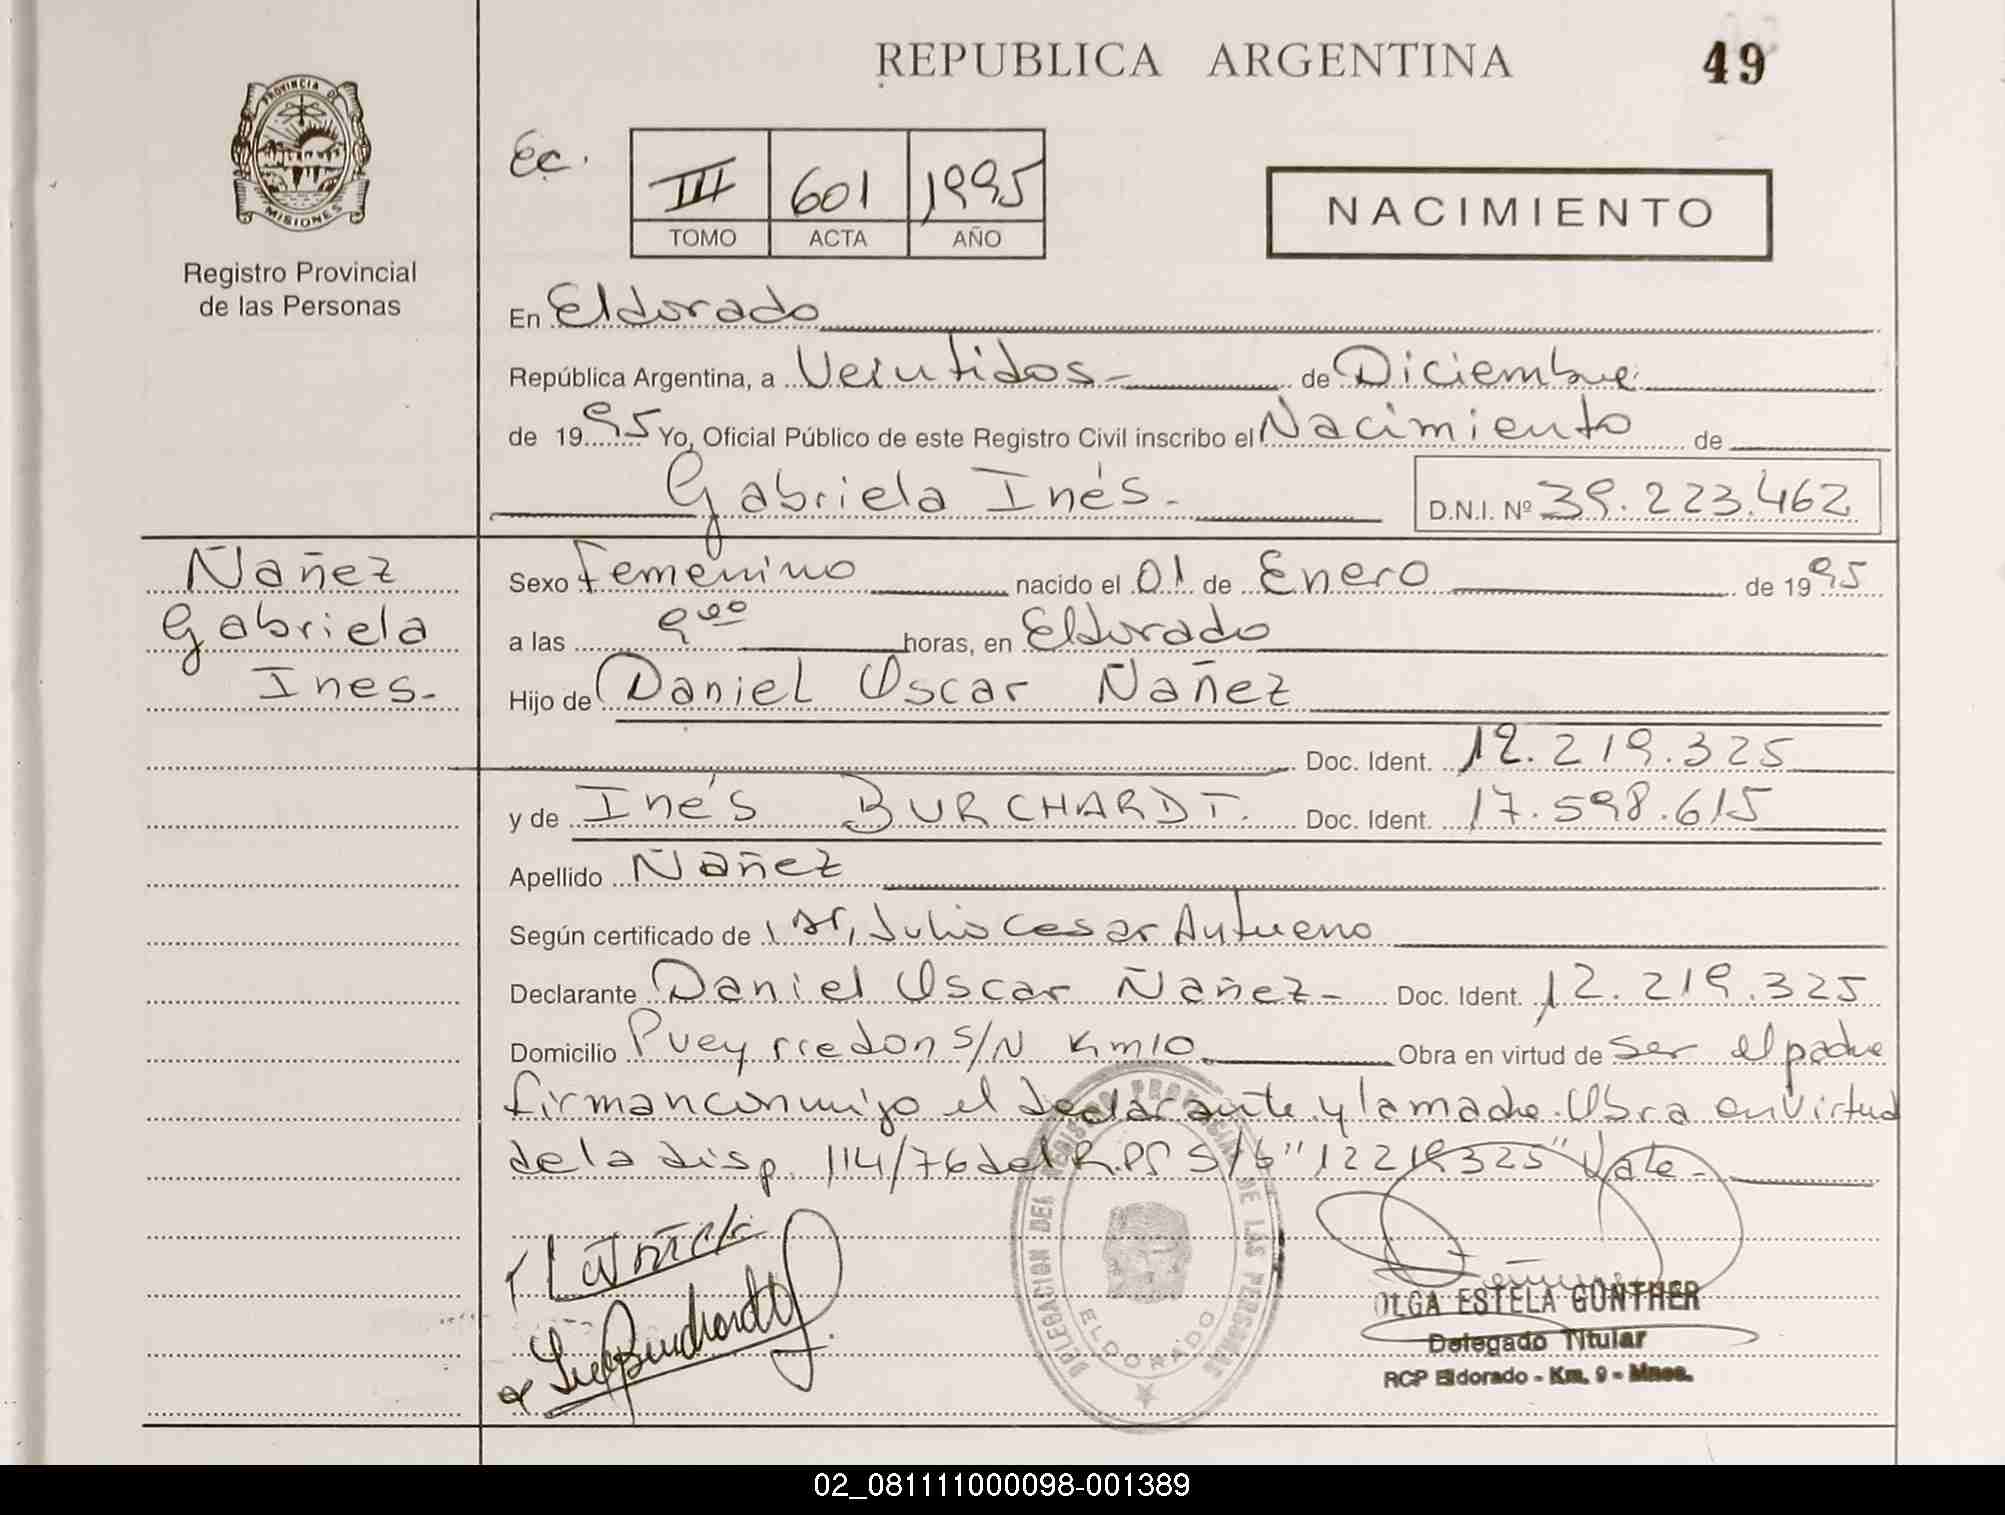 REPUBLICA ARGENTINA
49
PROVINCIA DE
MISIONES
Registro Provincial
de las Personas
Ec.
III 601 1995
TOMO ACTA AÑO
NACIMIENTO
En Eldorado
República Argentina, a Veintidos - de Diciembre
de 1995 Yo, Oficial Público de este Registro Civil inscribo el Nacimiento de
Gabriela Inés - D.N.I. Nº 39.223.462
Ñañez
Gabriela
Ines -
Sexo Femenino nacido el 01 de Enero de 1995
a las 9 00 horas, en Eldorado
Hijo de Daniel Oscar Ñañez
Doc. Ident. 12.219.325
y de Inés BURCHARDT. Doc. Ident. 17.598.615
Apellido Ñañez
Según certificado de Julio Cesar Antueno
Declarante Daniel Oscar Ñañez - Doc. Ident. 12.219.325
Domicilio Pueyrredon S/N Km 10 Obra en virtud de ser el padre
firman conmigo el declarante y la madre. Obra en virtud
de la disp. 114/76 del R.PS S/b "12219325" Vale -
DELEGACION DEL REGISTRO PROVINCIAL DE LAS PERSONAS
ELDORADO
OLGA ESTELA GUNTHER
Delegado Titular
RCP Eldorado - Km. 9 - Mnes.
02_081111000098-001389